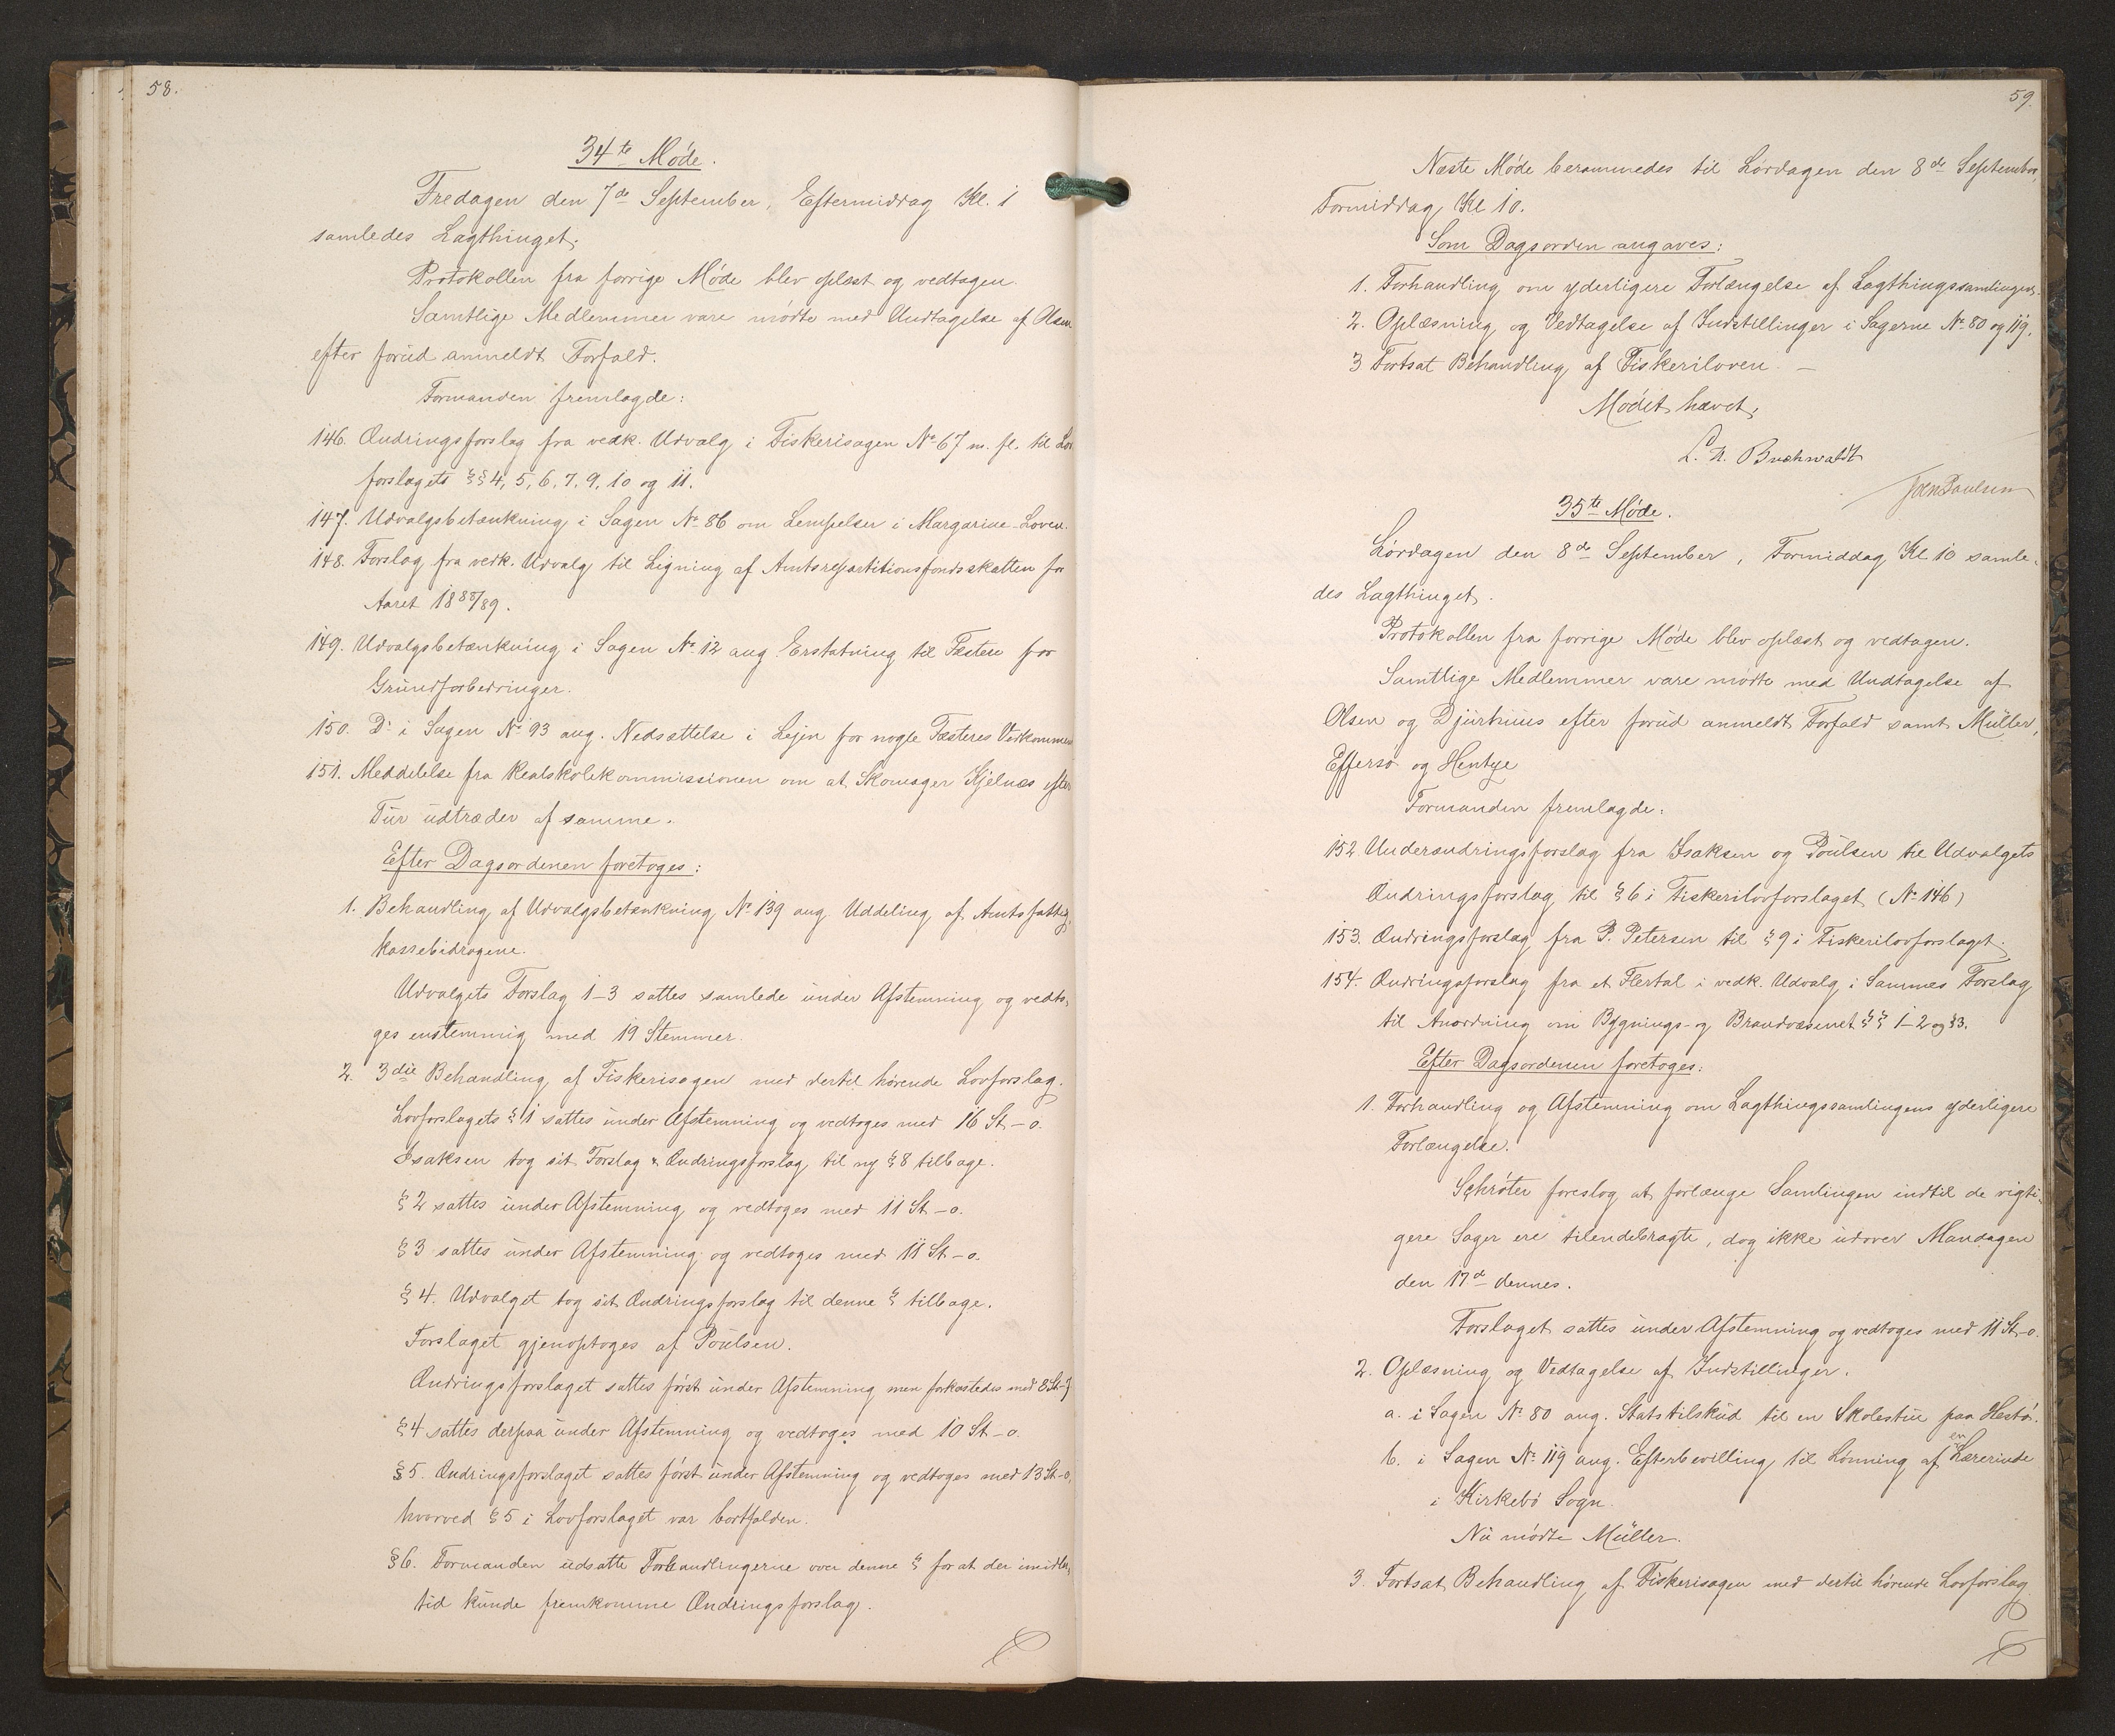 58.
34te Møde.
Fredagen den 7de September, Eftermiddag Kl. 1
samledes Lagthinget.
Protokollen fra forrige Møde blev oplæst og vedtagen.
Samtlige Medlemmer vare mødte med Undtagelse af Olsen
efter forud anmeldt Forfald.
Formanden fremlagde:
146. Ændringsforslag fra vedk. Udvalg i Fiskerisagen No 67 m. fl. til Lov
forslagets §§ 4, 5, 6, 7, 9, 10 og 11.
147. Udvalgsbetænkning i Sagen No 86 om Lempelser i Margarine-Loven.
148. Forslag fra vedk. Udvalg til Ligning af Amtsrepartitionsfondsskatten for
Aaret 1888/89.
149. Udvalgsbetænkning i Sagen No 12 ang. Erstatning til Fæstere for
Grundforbedringer.
150. Do i Sagen No 93 ang. Nedsættelse i Lejen for nogle Fæsteres Vedkommen
151. Meddelelse fra Realskolekommissionen om at Skomager Kjelnæs efter
Tur udtræder af samme.
Efter Dagsordenen foretoges:
1. Behandling af Udvalgsbetænkning No 139 ang Uddeling af Amtsfattig-
kassebidragene.
Udvalgets Forslag 1-3 sattes samlede under Afstemning og vedto-
ges enstemmig med 19 Stemmer.
2. 3die Behandling af Fiskerisagen med dertil hørende Lovforslag.
Lovforslagets § 1 sattes under Afstemning og vedtoges med 16 St-0.
Isaksen tog sit Forslag & Ændringsforslag til ny § 8 tilbage.
§ 2 sattes under Afstemning og vedtoges med 11 St-0.
§ 3 sattes under Afstemning og vedtoges med 11 St-0.
§ 4. Udvalget tog sit Ændringsforslag til denne § tilbage.
Forslaget gjenoptoges af Poulsen.
Ændringsforslaget sattes først under Afstemning men forkastedes med 8 St-7
§ 4 sattes derpaa under Afstemning og vedtoges med 10 St-0.
§ 5. Ændringsforslaget sattes først under Afstemning og vedtoges med 13 St-0,
hvorved § 5 i Lovforslaget var bortfalden.
§ 6. Formanden udsatte Forhandlingerne over denne § for at der imidler-
tid kunde fremkomme Ændringsforslag.
59.
Næste Møde berammedes til Lørdagen den 8de September,
Formiddag Kl 10.
Som Dagsorden angaves:
1. Forhandling om yderligere Forlængelse af Lagthingssamlingen.
2. Oplæsning og Vedtagelse af Indstillinger i Sagerne No 80 og 119.
3 Fortsat Behandling af Fiskeriloven. —
Mødet hævet.
Buchwaldt
Poulsen
35te Møde.
Lørdagen den 8de September, Formiddag Kl 10 samle-
des Lagthinget.
Protokollen fra forrige Møde blev oplæst og vedtagen.
Samtlige Medlemmer vare mødte med Undtagelse af
Olsen og Djurhuus efter forud anmeldt Forfald samt Müller,
Effersø og Hentze
Formanden fremlagde:
152. Underændringsforslag fra Isaksen og Poulsen til Udvalgets
Ændringsforslag til § 6 i Fiskerilovforslaget (No 146)
153. Ændringsforslag fra P. Petersen til § 9 i Fiskerilovforslaget.
154. Ændringsforslag fra et Flertal i vedk. Udvalg i Sammes Forslag
til Anordning om Bygnings- og Brandvæsenet §§ 1-2 og 33.
Efter Dagsordenen foretoges:
1. Forhandling og Afstemning om Lagthingssamlingens yderligere
Forlængelse.
Schrøter foreslog at forlænge Samlingen indtil de vigti-
gere Sager ere tilendebragte, dog ikke udover Mandagen
den 17de dennes.
Forslaget sattes under Afstemning og vedtoges med 11 St-0.
2. Oplæsning og Vedtagelse af Indstillinger.
a. i Sagen No 80 ang. Statstilskud til en Skolestue paa Hestø.
b. i Sagen No 119 ang. Efterbevilling til Lønning af en Lærerinde
i Kirkebø Sogn.
Nu mødte Müller.
3. Fortsat Behandling af Fiskerisagen med dertil hørende Lovforslag